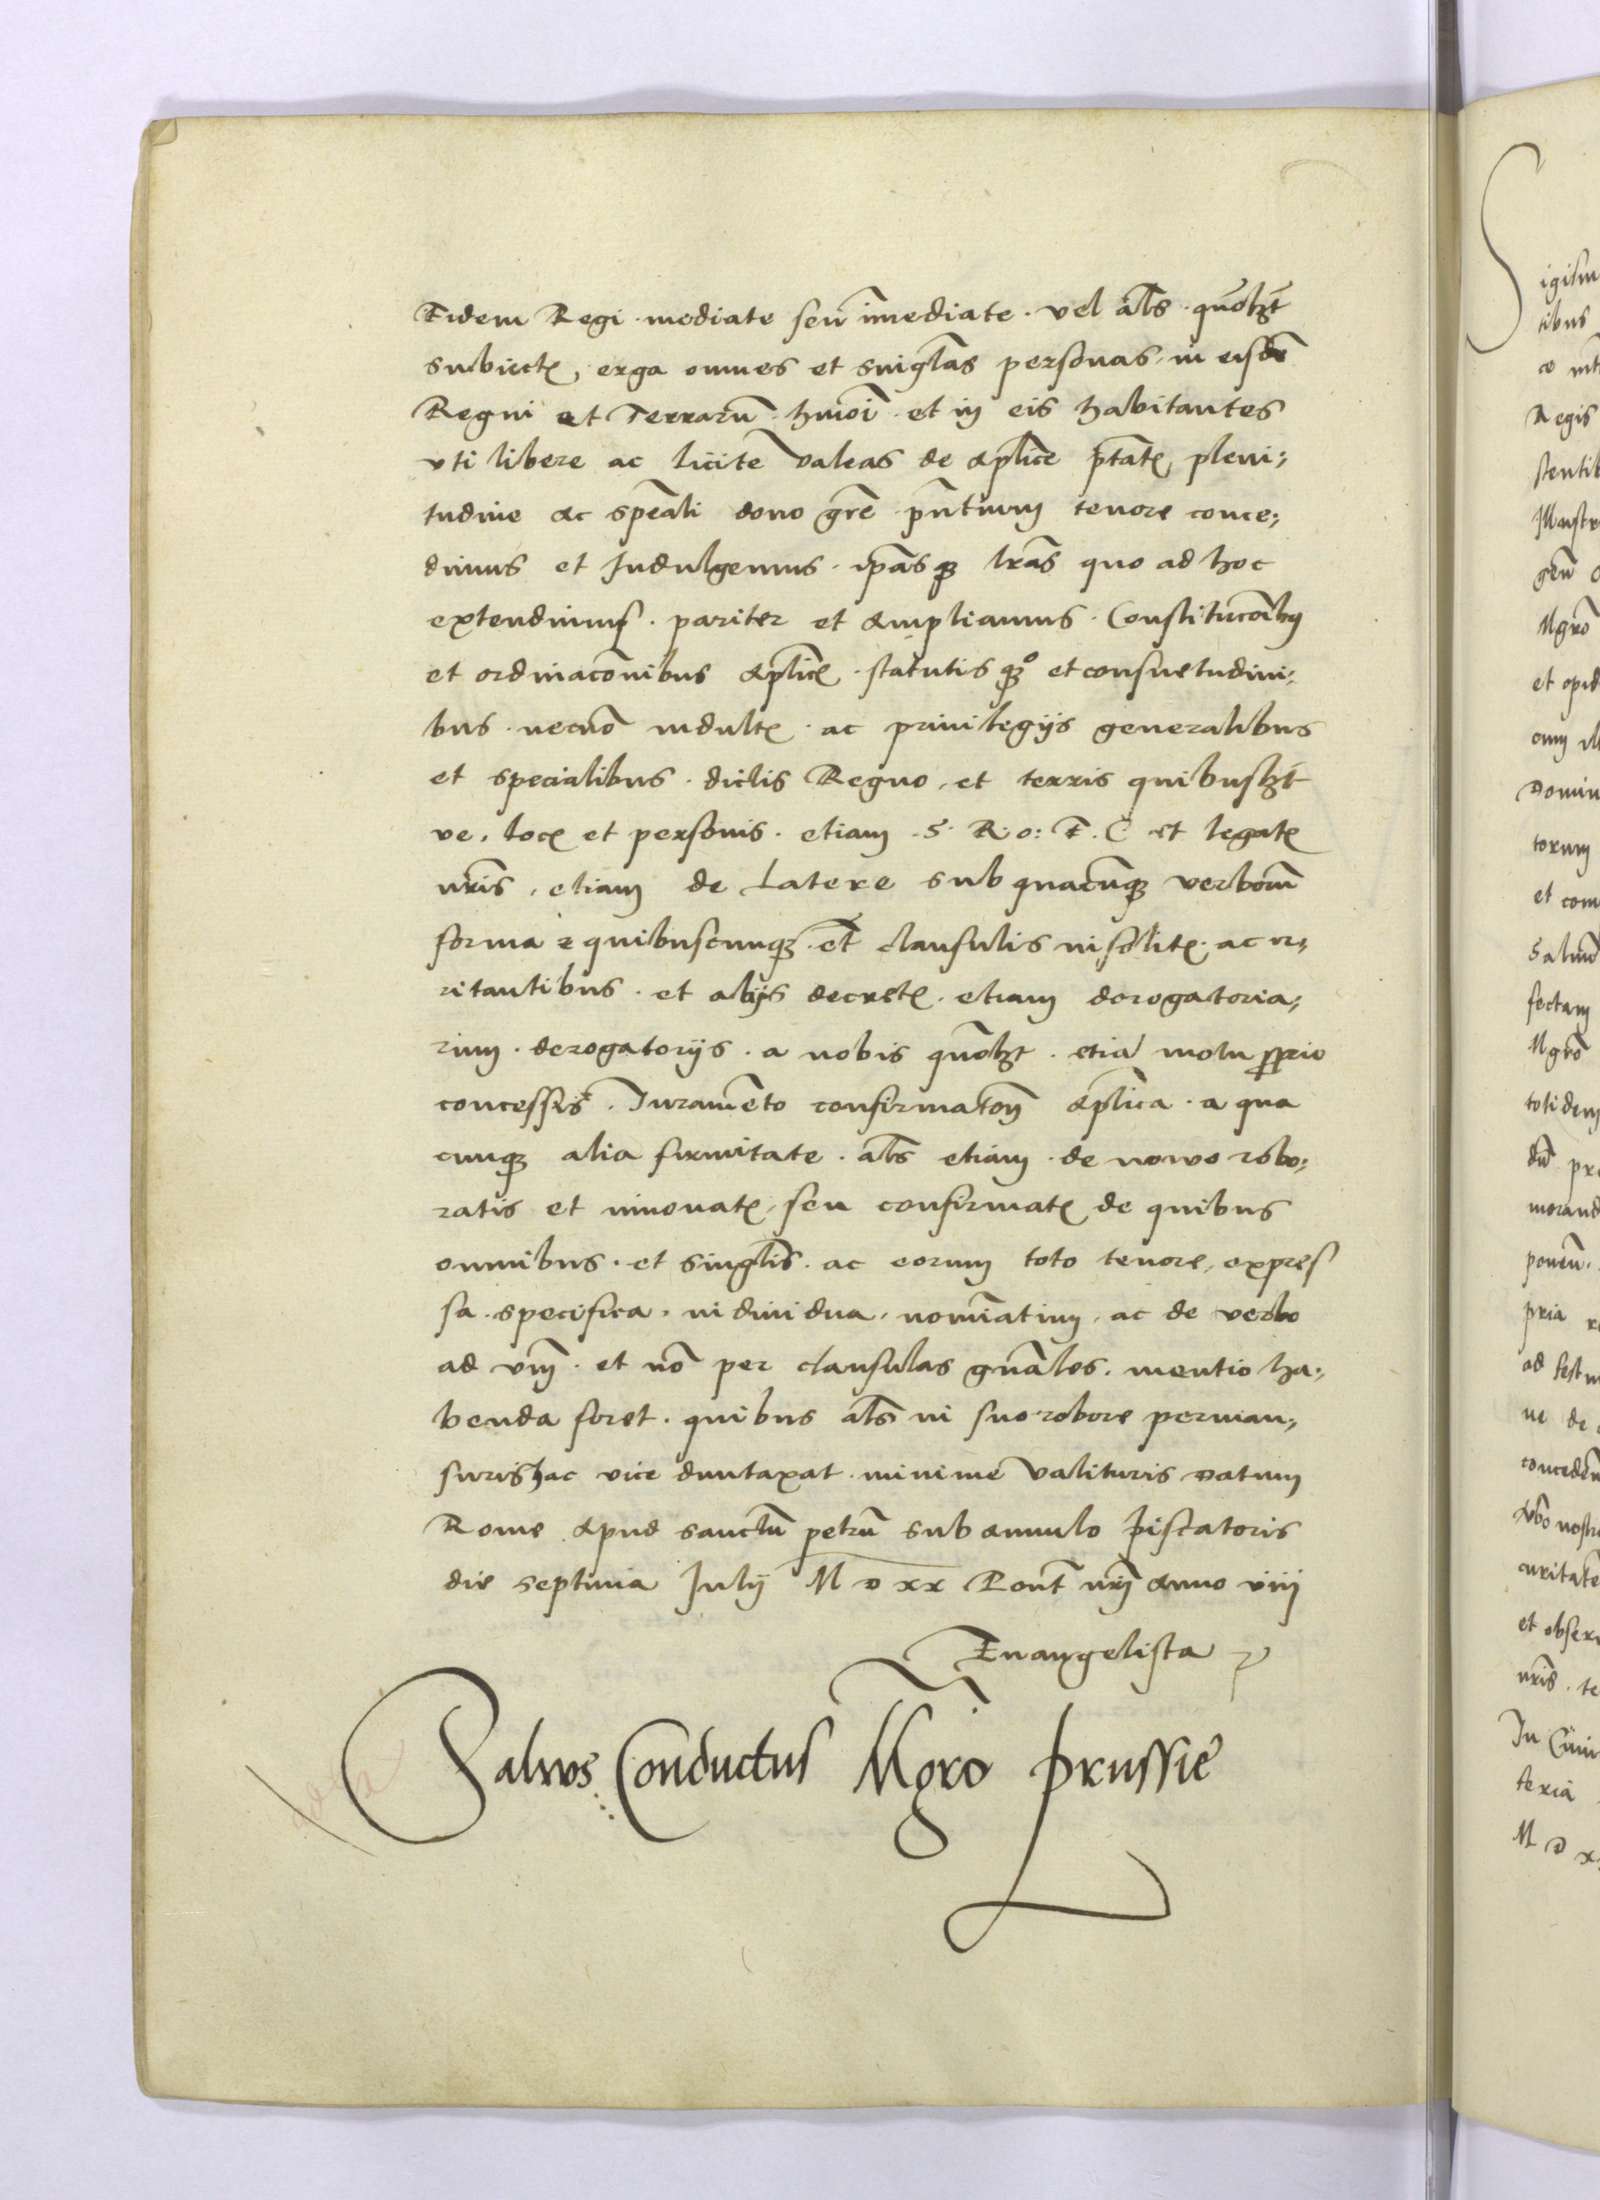 Eidem Regi mediate seu im̄ediate. vel al̄s quōl̄zt
subiectꝭ, erga omnes et singl̄as personas in eisdē
Regni et Terrarū hmōi et in eis habitantes
vti libere ac licite valeas de apl̄ice ptātꝭ pleni,
tudine ac speāli dono grē pn̄tium tenore conce,
dimus et Indulgemus. ip̄asqꝫ lr̄as quo ad hoc
extendimus. pariter et ampliamus. Constitucōibus
et ordinacōnibus apl̄icꝭ. statutis qꝫ° et consuetudini,
bus. necnō indultꝭ. ac priuilegijs generalibus
et specialibus. dictis Regno, et terris quibusl̄zt
ve. locꝭ et personis. etiam S. R. o: E. C et legatꝭ
nr̄is, etiam de Latere sub quacūqꝫ verborū
forma z quibuscumqꝫ et̄ clausulis insolitꝭ. ac ir,
ritantibus. et alijs decretꝭ. etiam dorogatoria,
rum. derogatorijs. a nobis quōl̄zt. etiā motu proprio
concessis. Iuramēto confirmatōn apl̄ica. a qua
cumqꝫ alia firmitate. al̄s etiam. de nowo robo:
ratis et innouatꝭ, seu confirmatꝭ de quibus
omnibus. et singl̄is. ac eorum toto tenore, expres
sa. specifica. indiuidua. nomīatim, ac de verbo
ad vm̄. et nō per clausulas gnāles. mentio ha,
benda foret. quibus al̄s in suo robore perman,
suris hac vice duntaxat. minime valituris Datum
Rome apud sanctū petrū sub annulo Piscatoris
die septima Iulij M D XX Pont̄ nr̄i anno viij
Euangelista
Saluos Conductus Mgro Prussie
igism
tibus
Regis
stentib
Illustr
gen̄
Mgro
et opid
cum
Domin
torum
et com
Salun
fectam
Mgro
totidem
morand
ponen̄.
pria
ad fest
ne de
conceden
nostr
curitatē
et obser
nr̄is. te
In
teria
M D x